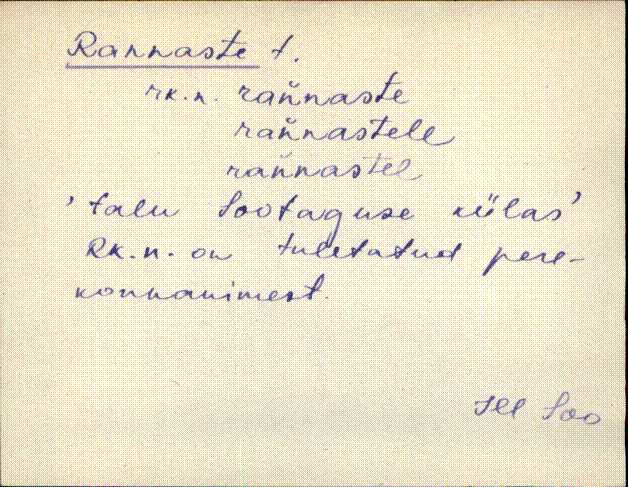 Rannaste t.
rk.n. rañnaste
rañnastele
rañnastel
'talu Sootaguse külas'
Rk.n. on tuletatud pere-
konnanimest.
Soo